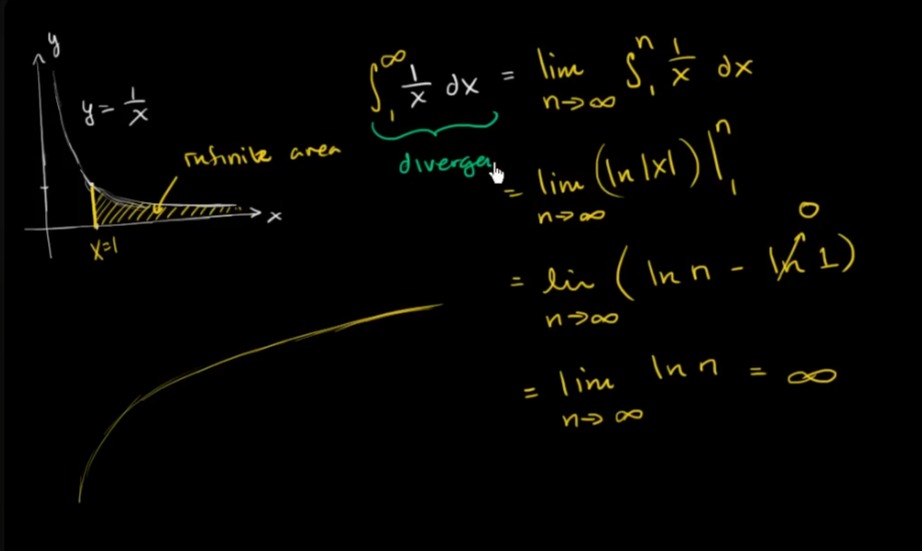 y
y = 1/x
infinite area
x
x=1
∫₁^∞ 1/x dx = lim n→∞ ∫₁ⁿ 1/x dx
diverge
= lim n→∞ (ln|x|)|₁ⁿ
= lim n→∞ (ln n - ln 1) 0
= lim n→∞ ln n = ∞